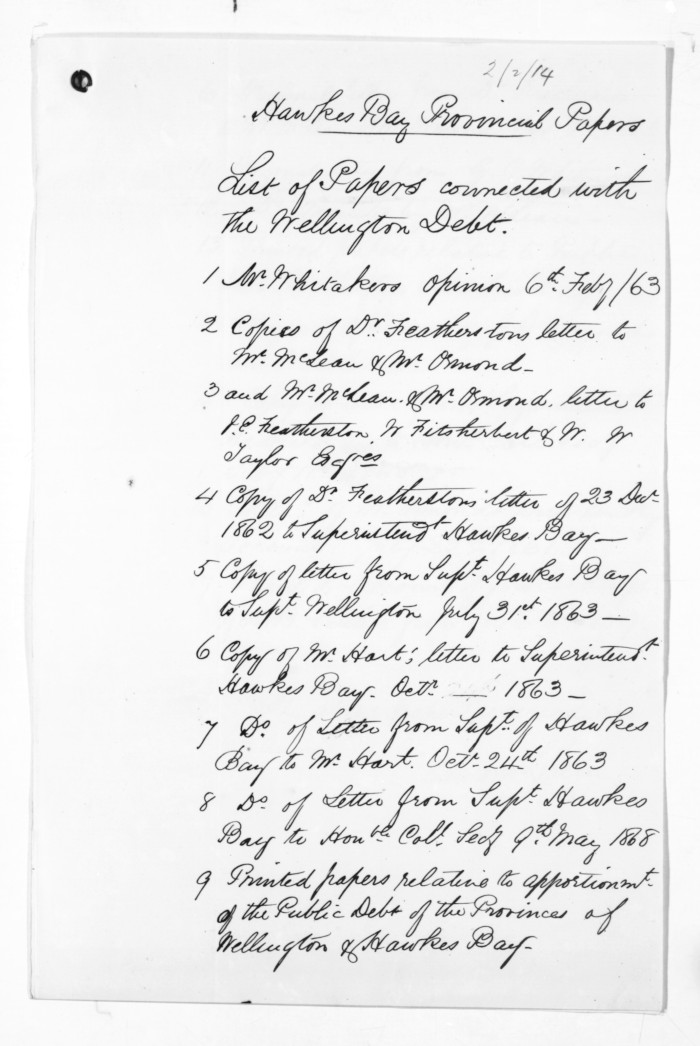 2/2/14
Hawkes Bay Provincial Papers
List of Papers connected with
the Wellington Debt.
1 Mr. Whitakers opinion 6th. Feby /63
2 Copies of Dr. Featherstons letter to
Mr. McLean & Mr. Ormond –
3 and Mr. McLean. & Mr. Ormond. letter to
I.E. Featherston, W Fitzherbert & W. W
Taylor Esqres
4 Copy of Dr. Featherstons letter of 23 Decr
1862 to Superintendt Hawkes Bay –
5 Copy of letter from Supt. Hawkes Bay
to Supt. Wellington July 31st. 1863 –
6 Copy of Mr. Hart's letter to Superintendt.
Hawkes Bay. Octr. 1863 –
7 Do. of Letter from Supt. of Hawkes
Bay to Mr. Hart. Octr. 24th 1863
8 Do. of Letter from Supt. Hawkes
Bay to Honble Coll. Secy 9th. May 1868
9 Printed papers relative to apportionmt.
of the Public Debt of the Provinces of
Wellington & Hawkes Bay.